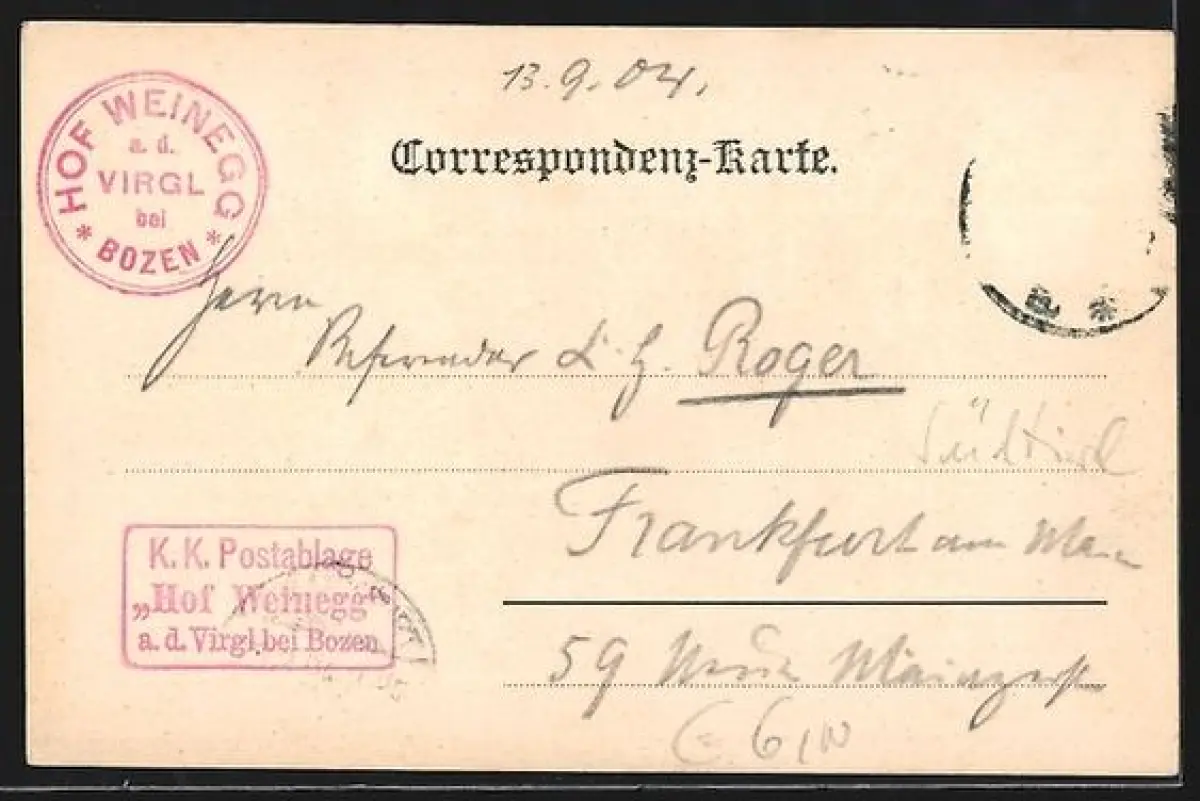 13.9.04.
Correspondenz-Karte.
HOF WEINEGG
a. d.
VIRGL
bei
* BOZEN *
Herrn
Referendar L. H. Roger
Südtirol
Frankfurt am Main
K. K. Postablage
„Hof Weinegg“
a. d. Virgl bei Bozen
59 Neue Mainzerstr
6,00